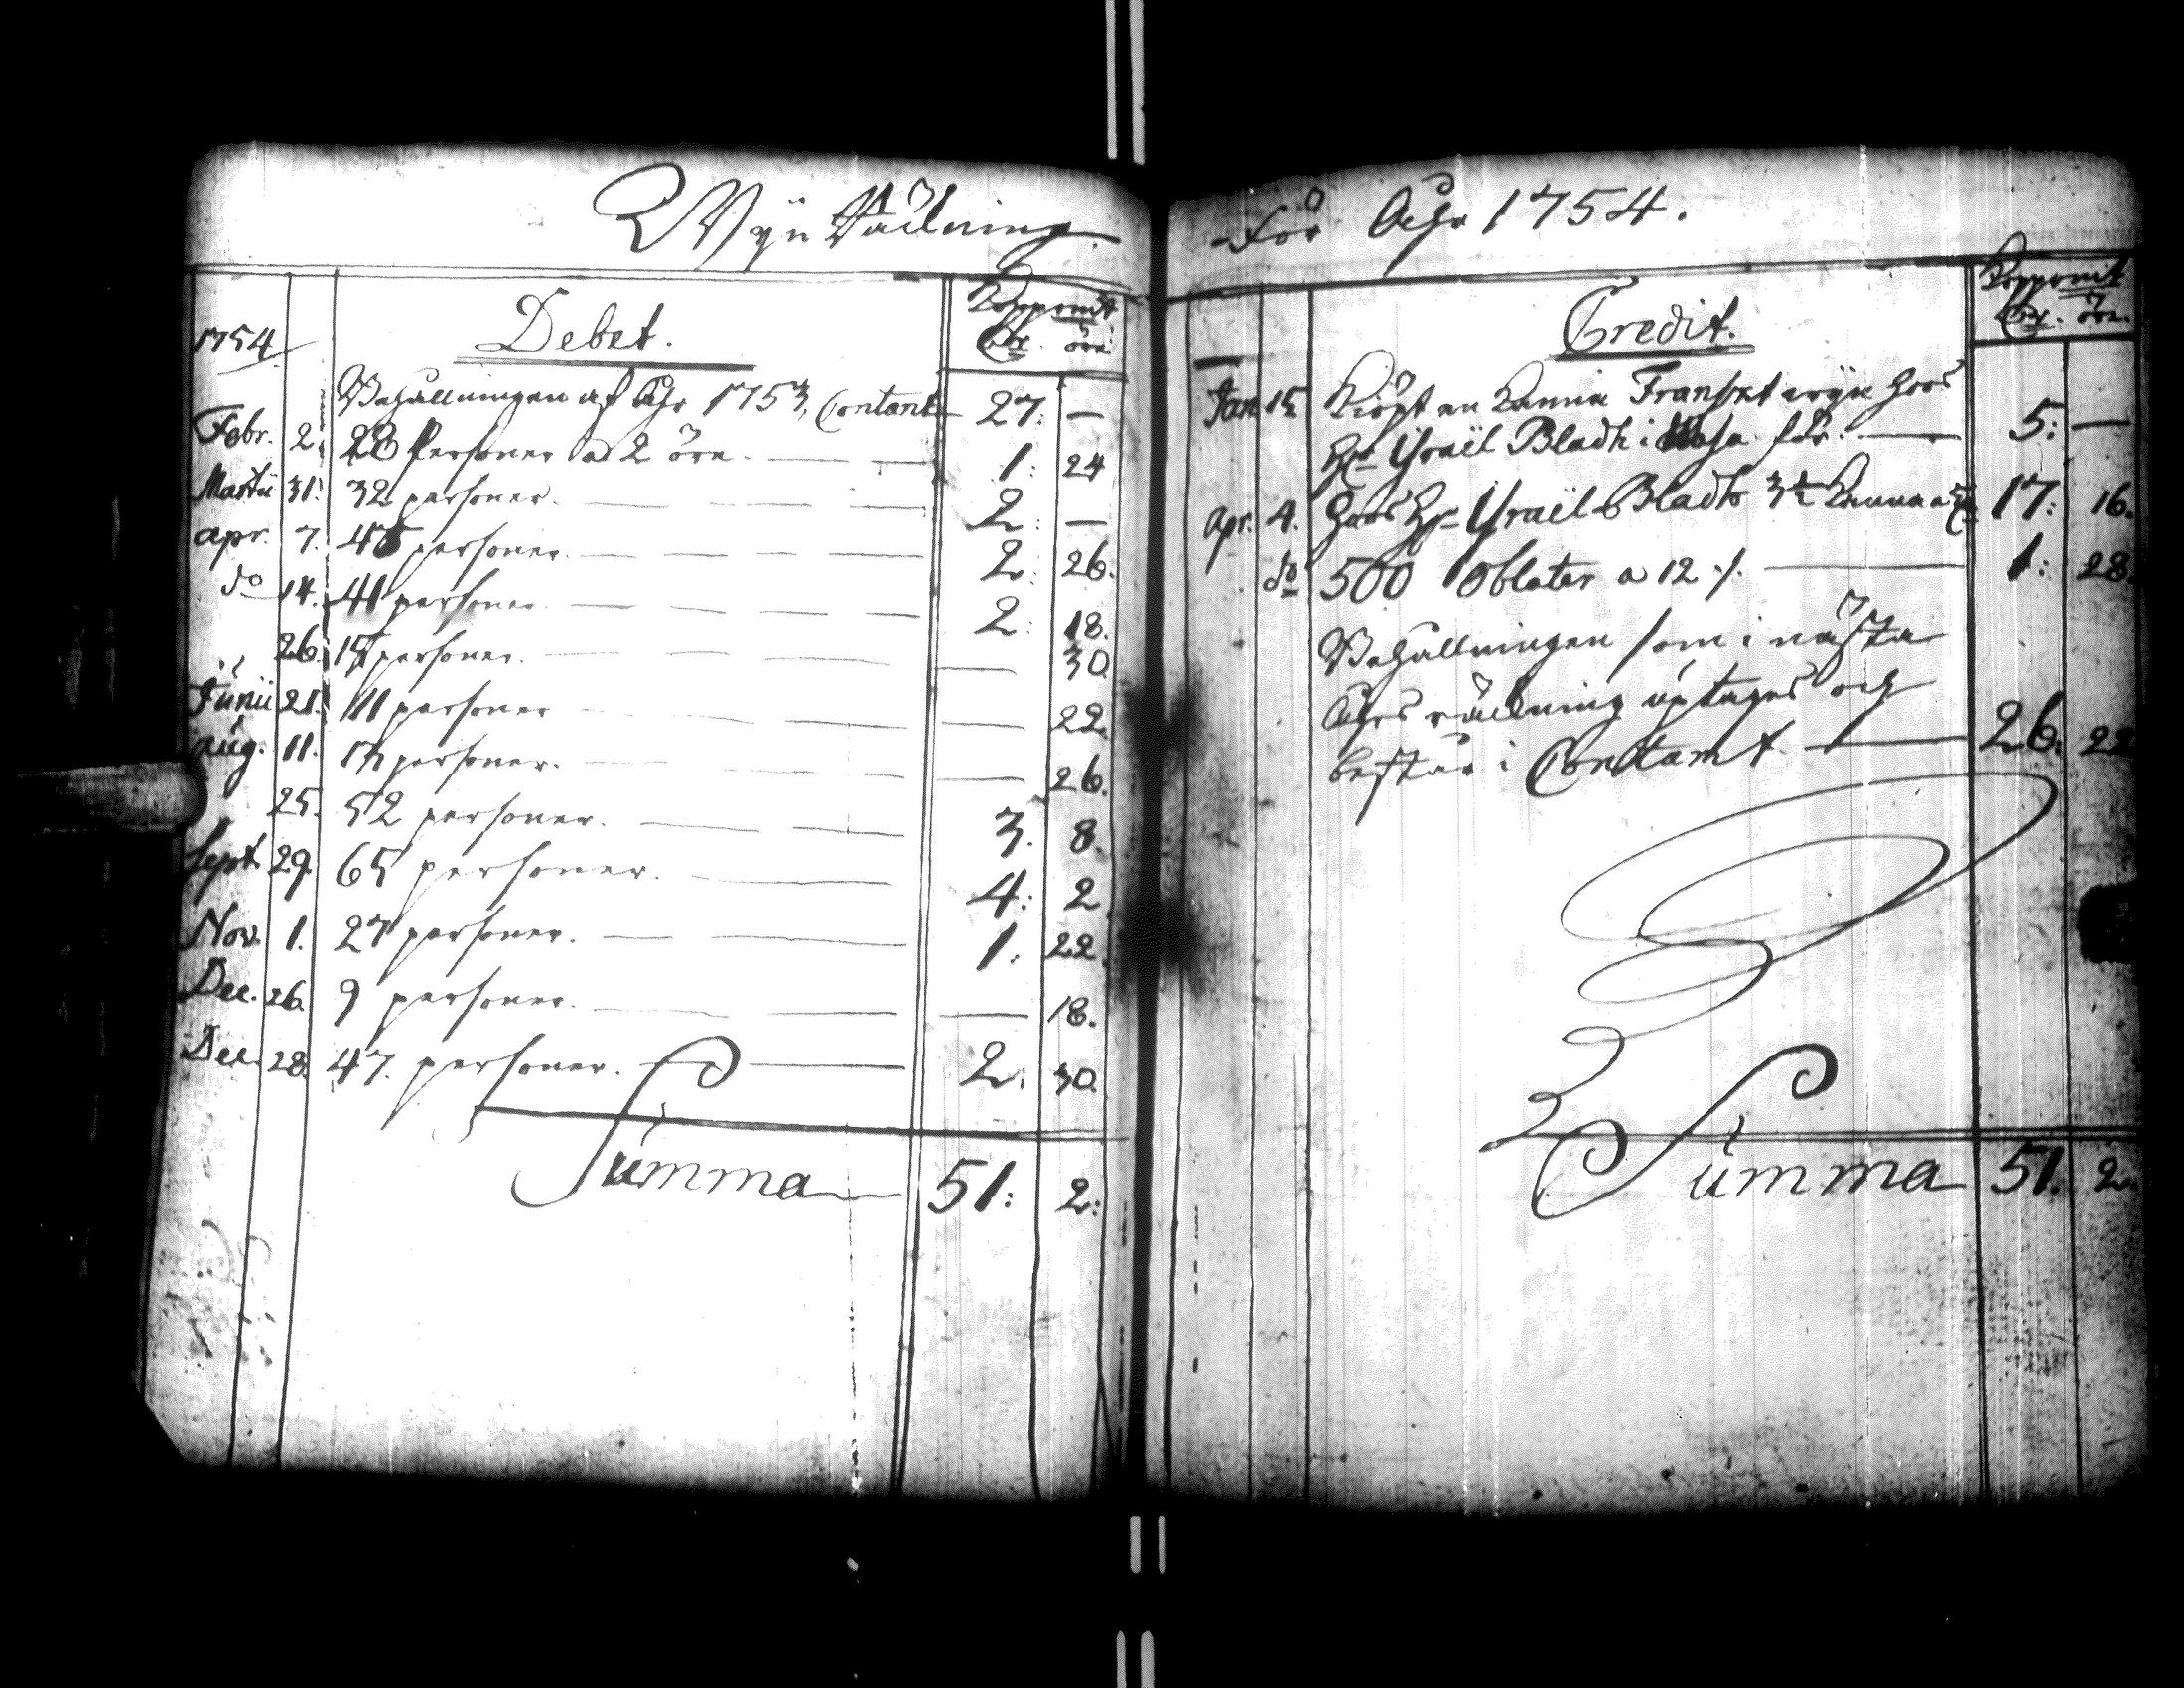 Wyn Räkning
1754
Debet.
Koppomt
dlr. öre
Behållningen af Åhr 1753, Contant 27: —
Febr. 2. 28 Personer a 2 öre. 1: 24
Martii 31. 32 personer. 2: —
Apr. 7. 45 personer. 2: 26.
do 14. 41 personer. 2: 18.
26. 15 personer. — 30
Junii 21. 11 personer — 22.
Aug. 11. 13 personer. — 26.
25. 52 personer. 3. 8.
Sept. 29. 65 personer. 4: 2.
Nov. 1. 27 personer. 1. 22.
Dec. 26. 9 personer. — 18.
Dec. 28. 47. personer. 2. 30.
Summa 51: 2:
för Åhr 1754.
Credit.
Koppomt
dlr. öre.
Jan. 15 Kiöpt en Kanna Franskt wyn hoos
Hr Israël Bladh i Wasa för. 5: —
Apr. 4. hoos Hr Israël Bladh 3½ Kanna a 17: 16.
do 500 Oblater a 12 ./. 1: 28.
Behållningen som i nästa
Åhrs räkning uptages och
består i Contant 26: 22
Summa 51. 2.